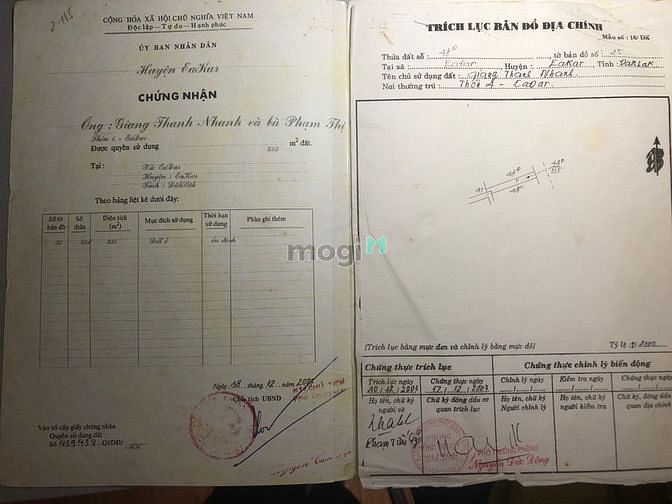 2-115
CỘNG HÒA XÃ HỘI CHỦ NGHĨA VIỆT NAM
Độc lập - Tự do - Hạnh phúc
ỦY BAN NHÂN DÂN
Huyện EaKar
CHỨNG NHẬN
Ông : Giang Thanh Nhanh và bà Phạm Thị
Được quyền sử dụng 335 m² đất.
Tại : Xã: EaDar
Huyện : EaKar
Tỉnh : DakLak
Theo bảng liệt kê dưới đây:
Số tờ bản đồ Số thửa Diện tích (m²) Mục đích sử dụng Thời hạn sử dụng Phần ghi thêm
335 Đất ở ổn định
Ngày 18 tháng 12 năm 2003
Chủ tịch UBND
Vào sổ cấp giấy chứng nhận
Quyền sử dụng đất
Số QSDĐ/
TRÍCH LỤC BẢN ĐỒ ĐỊA CHÍNH
Mẫu số: 16/ĐK
Thửa đất số 48ᵈ, từ bản đồ số 25
Tại xã: EaDar, Huyện: EaKar, Tỉnh: DakLak
Tên chủ sử dụng đất: Giang Thanh Nhanh
Nơi thường trú: Thôn - EaDar
48ᵈ
335
mogi
(Trích lục bằng mực đen và chỉnh lý bằng mực đỏ)
Tỷ lệ 1/2000
Chứng thực trích lục Chứng thực chỉnh lý biến động
Trích lục ngày Chứng thực ngày Chỉnh lý ngày Kiểm tra ngày Chứng thực ngày
10/12/2003 17/12/2003
Họ tên, chữ ký người vẽ Chữ ký đóng dấu cơ quan trích lục Họ tên, chữ ký Người chỉnh lý Họ tên, chữ ký người kiểm tra Chữ ký, đóng dấu quan địa chính
PHÓ TRƯỞNG PHÒNG
Nguyễn Đức Đông